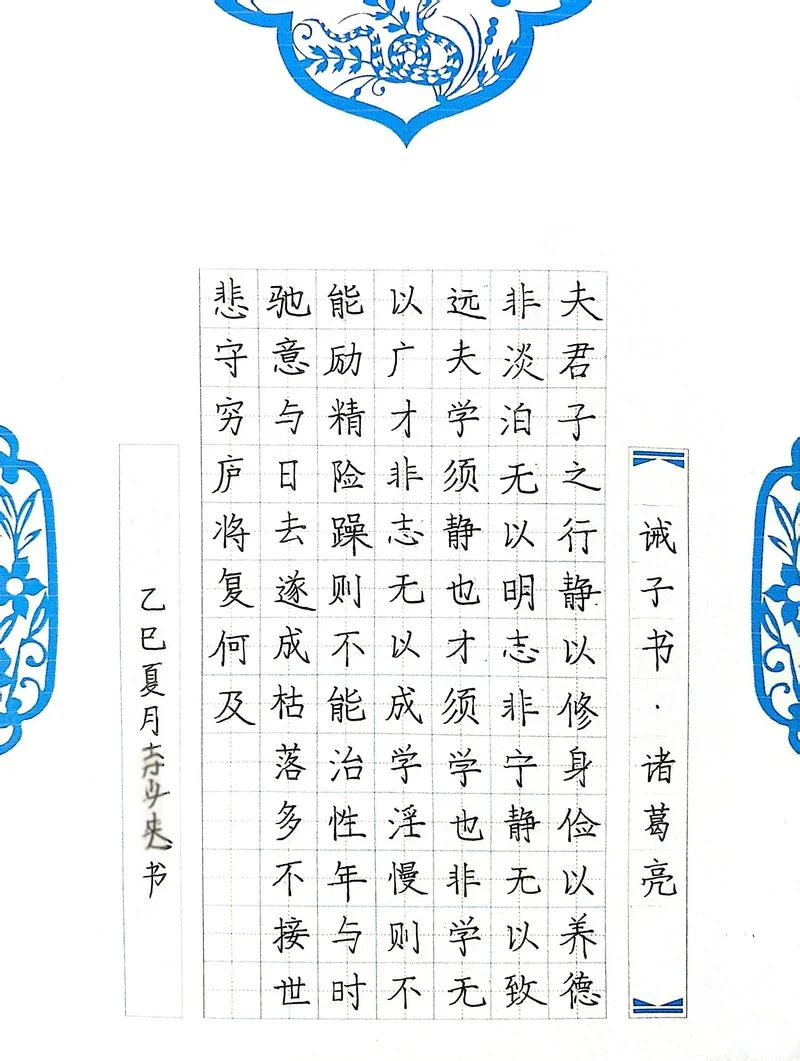 诫子书·诸葛亮
夫君子之行静以修身俭以养德
非淡泊无以明志非宁静无以致
远夫学须静也才须学也非学无
以广才非志无以成学淫慢则不
能励精险躁则不能治性年与时
驰意与日去遂成枯落多不接世
悲守穷庐将复何及
乙巳夏月书